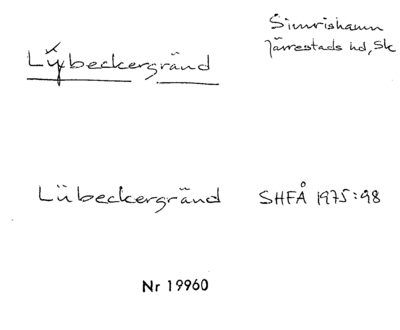 Simrishamn
Järrestads hd, Sk
Lybeckergränd
Lübeckergränd SHFÅ 1975:98
Nr 19960